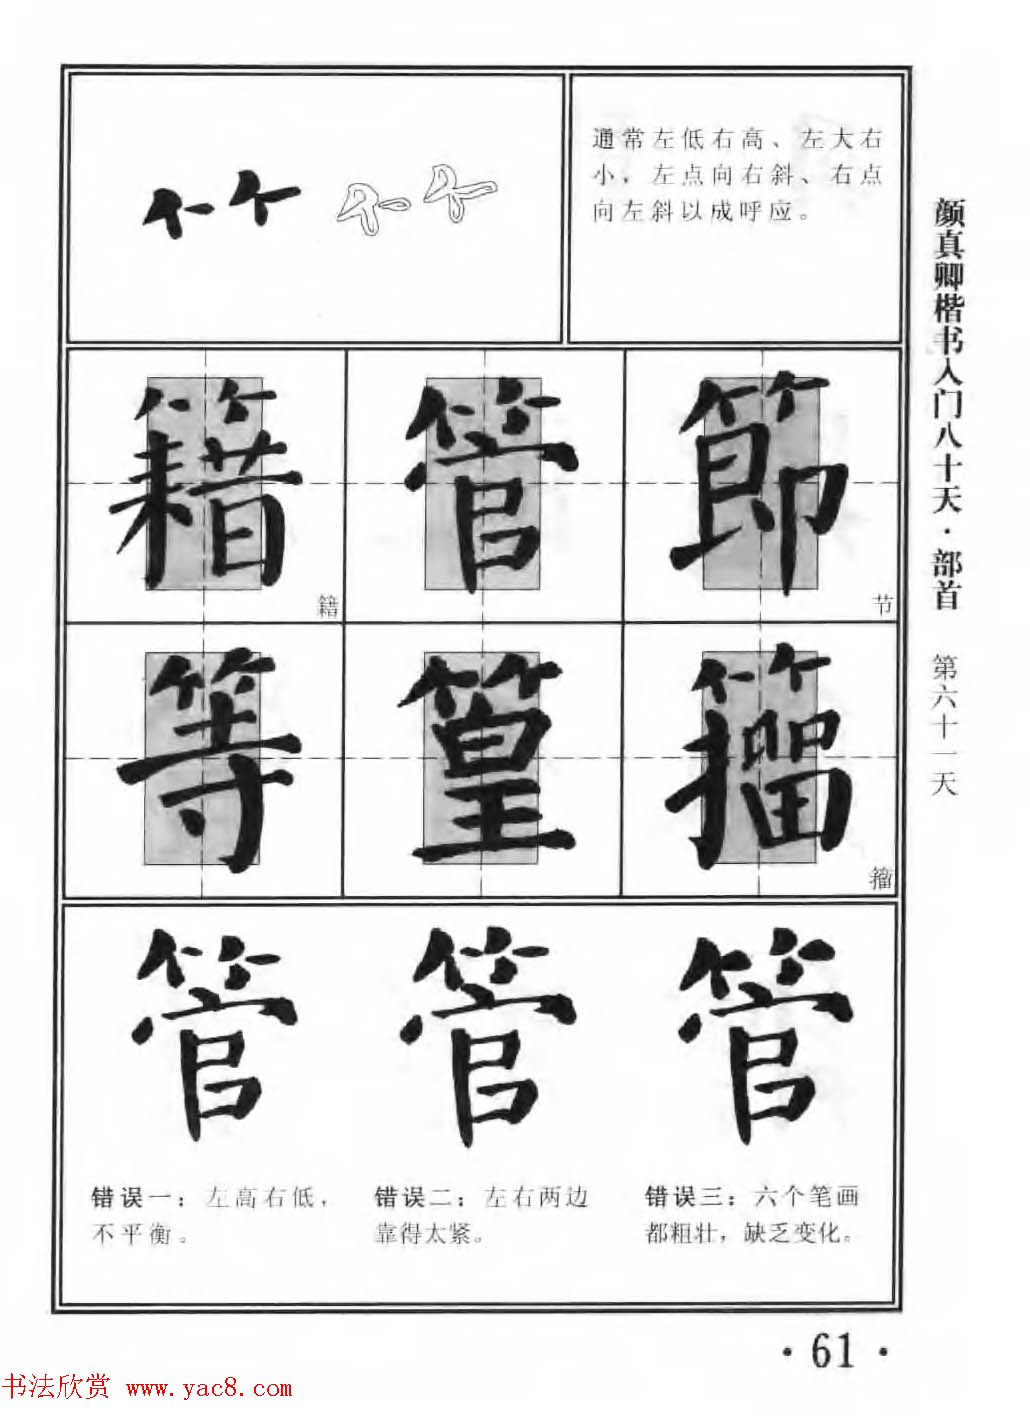 通常左低右高、左大右
小，左点向右斜、右点
向左斜以成呼应。
籍 管 節
籍 节
等 篁 籀
籀
管 管 管
错误一：左高右低，
不平衡。
错误二：左右两边
靠得太紧。
错误三：六个笔画
都粗壮，缺乏变化。
颜真卿楷书入门八十天·部首 第六十一天
·61·
书法欣赏 www.yac8.com